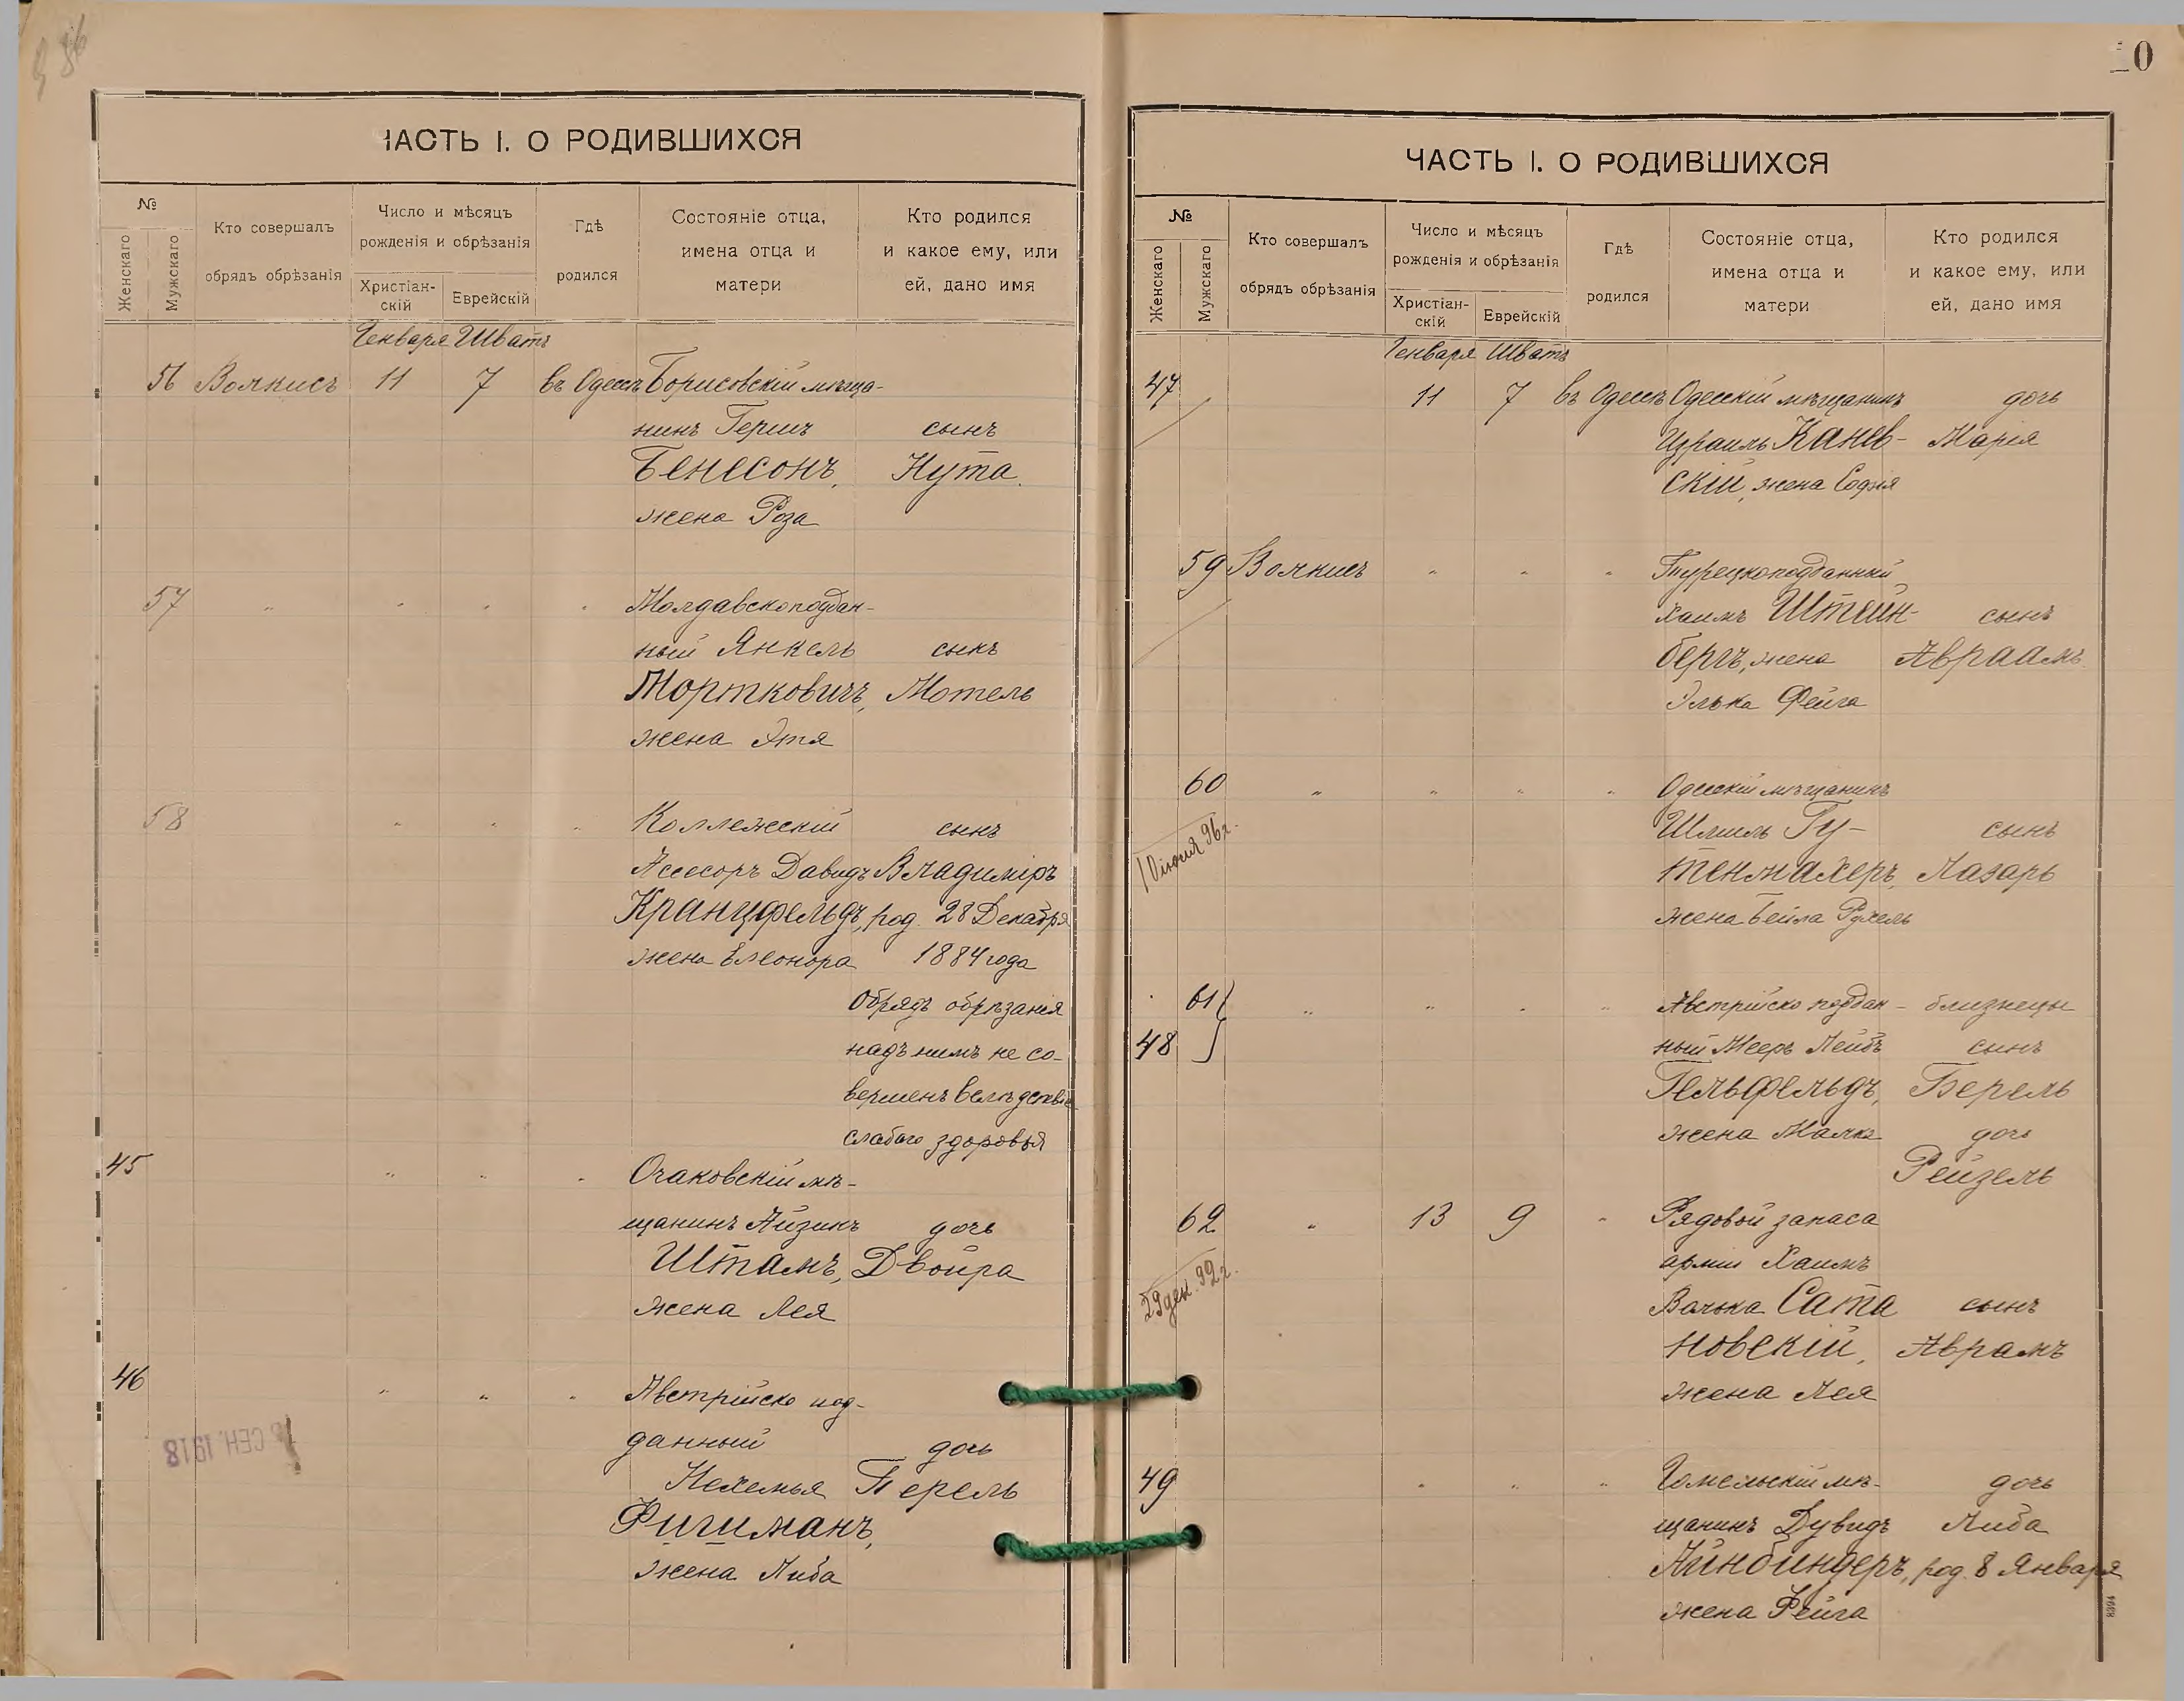 ЧАСТЬ I. О РОДИВШИХСЯ
№
Женскаго
Мужскаго
Кто совершалъ
обрядъ обрѣзанія
Число и мѣсяцъ
рожденія и обрѣзанія
Христіан-
скій
Еврейскій
Гдѣ
родился
Состояніе отца,
имена отца и
матери
Кто родился
и какое ему, или
ей, дано имя
Генваря Шватъ
56 Волкисъ 11 7 въ Одессѣ Борисовскій мѣща-
нинъ Гершъ сынъ
Бенесонъ, Нута.
жена Роза
57 " " " " Молдавскоподдан-
ный Янкель сынъ
Мортковичъ, Мотель
жена Этя
58 " " " Коллежскій сынъ
Асесоръ Давидъ Владиміръ
Кранцфельдъ, род. 28 Декабря
жена Елеонора 1884 года
Обрядъ обрѣзанія
надъ нимъ не со-
вершенъ вслѣдствіе
слабаго здоровья
45 " " " Очаковскій мѣ-
щанинъ Айзикъ дочь
Штамъ, Двойра
жена Лея
46 " " " Австрійско под-
данный дочь
Нехемья Перель
Фигиманъ,
жена Либа
СЕН. 1918
ЧАСТЬ I. О РОДИВШИХСЯ
№
Женскаго
Мужскаго
Кто совершалъ
обрядъ обрѣзанія
Число и мѣсяцъ
рожденія и обрѣзанія
Христіан-
скій
Еврейскій
Гдѣ
родился
Состояніе отца,
имена отца и
матери
Кто родился
и какое ему, или
ей, дано имя
Генваря Шватъ
47 11 7 въ Одессѣ Одесскій мѣщанинъ дочь
Израиль Канев- Марія
скій, жена Софія
59 Волкисъ " " " Турецкоподданный
Хаимъ Штейн- сынъ
бергъ, жена Авраамъ
Элька Фейга
60 " " " " Одесскій мѣщанинъ
Шмиль Гу- сынъ
тенмахеръ, Лазарь
жена Бейла Рухель
10 іюня 96 г.
61 " " " " Австрійско поддан- близнецы
48 ный Мееръ Лейбъ сынъ
Гельфельдъ, Берель
жена Малка дочь
Рейзель
62 " 13 9 " Рядовой запаса
арміи Хаимъ
Волька Сата сынъ
новскій, Аврамъ
жена Лея
29 дек. 92 г.
49 " " " Гомельскій мѣ- дочь
щанинъ Дувидъ Либа
Айнбиндеръ, род. 8 Января
жена Фейга
8394